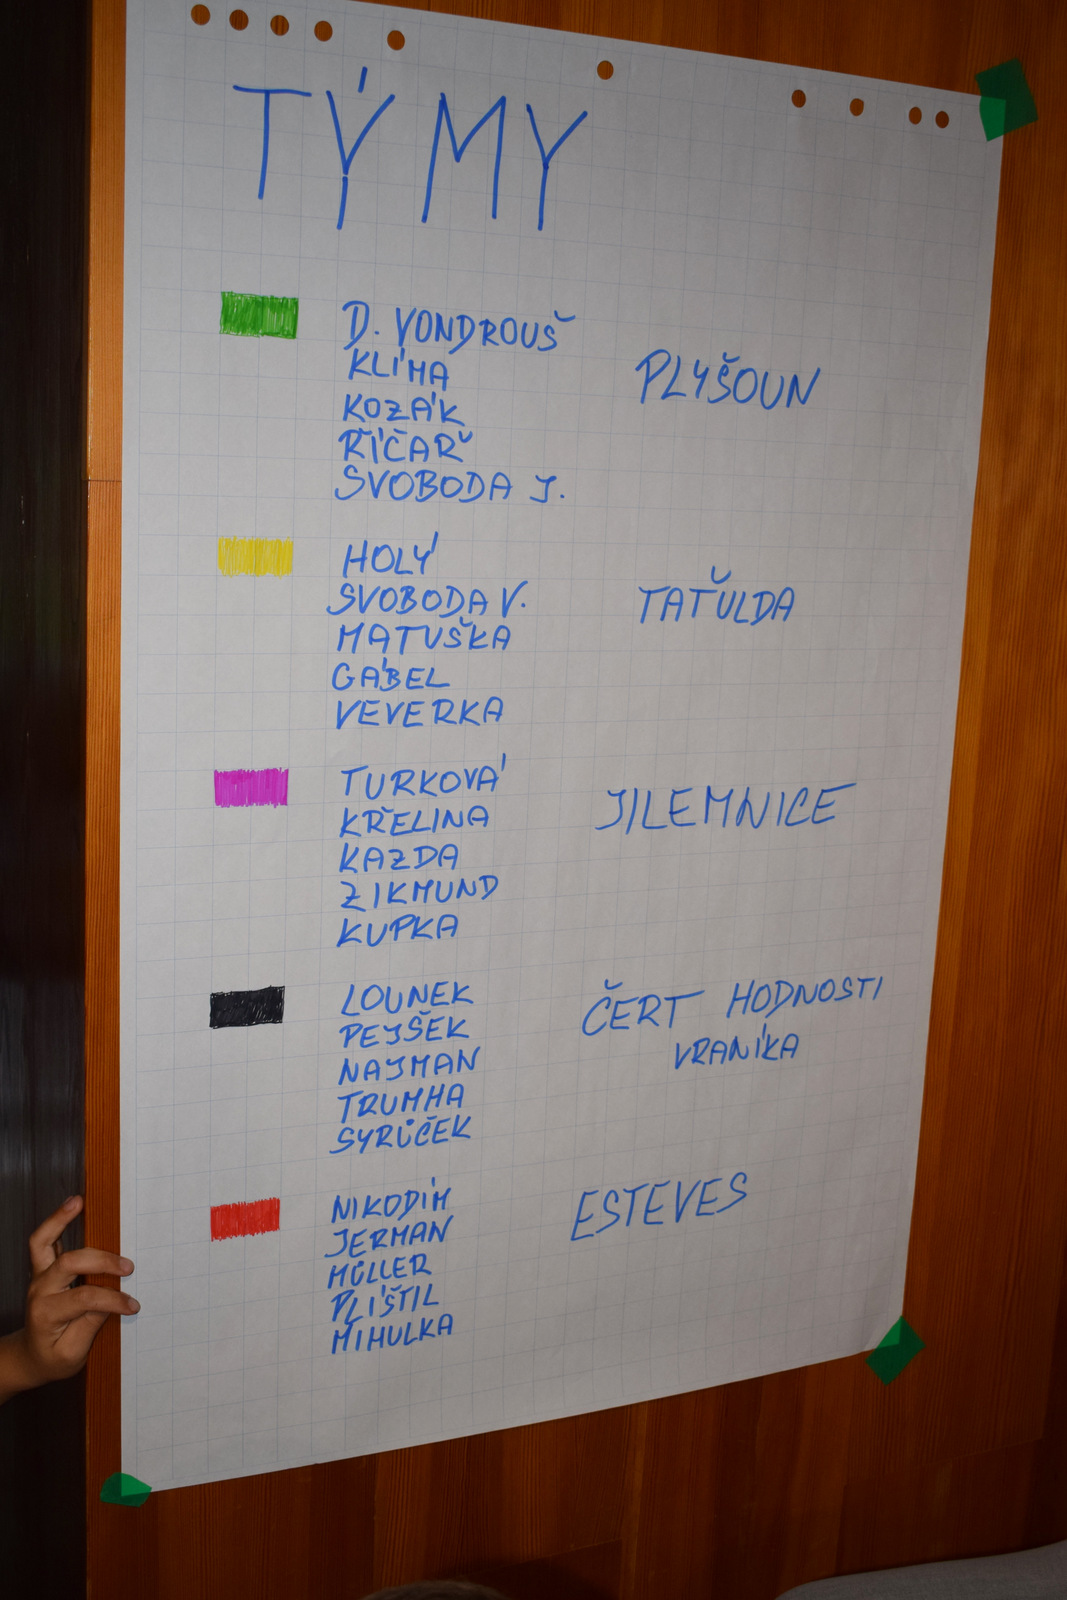 TÝMY
D. VONDROUŠ
KLÍMA
KOZÁK
ŘÍČAŘ
SVOBODA J.
PLYŠOUN
HOLÝ
SVOBODA V.
MATUŠKA
GÁBEL
VEVERKA
TAŤULDA
TURKOVÁ
KŘELINA
KAZDA
ZIKMUND
KUPKA
JILEMNICE
LOUNEK
PEJŠEK
NAJMAN
TRUMHA
SYRŮČEK
ČERT HODNOSTI
VRANÍKA
NIKODÍM
JERMAN
MŮLLER
PLÍŠTIL
MIHULKA
ESTEVES